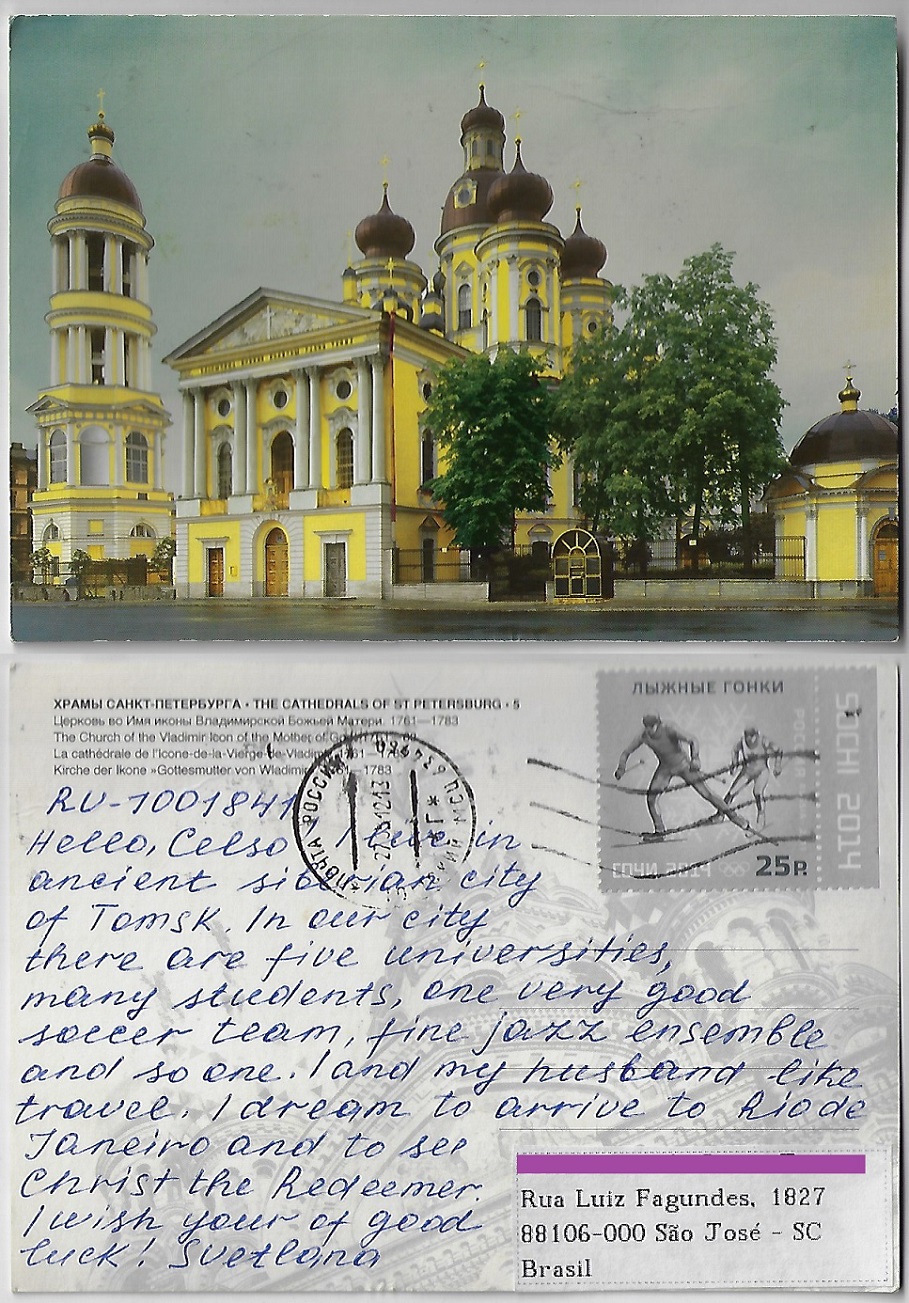 ХРАМЫ САНКТ-ПЕТЕРБУРГА • THE CATHEDRALS OF ST PETERSBURG • 5
Церковь во Имя иконы Владимирской Божьей Матери. 1761—1783
The Church of the Vladimir Icon of the Mother of
La cathédrale de l'Icone-de-la-Vierge-de-Vladimir
Kirche der Ikone »Gottesmutter von Wladimir 1783
ЛЫЖНЫЕ ГОНКИ
SOCHI 2014
СОЧИ 2014
25Р.
ПОЧТА РОССИИ
RU-1001841
Hello, Celso I live in
ancient siberian city
of Tomsk. In our city
there are five universities,
many students, one very good
soccer team, fine jazz ensemble
and so one. I and my husband like
travel. I dream to arrive to Rio de
Janeiro and to see
Christ the Redeemer.
I wish your of good
luck! Svetlana
Rua Luiz Fagundes, 1827
88106-000 São José - SC
Brasil